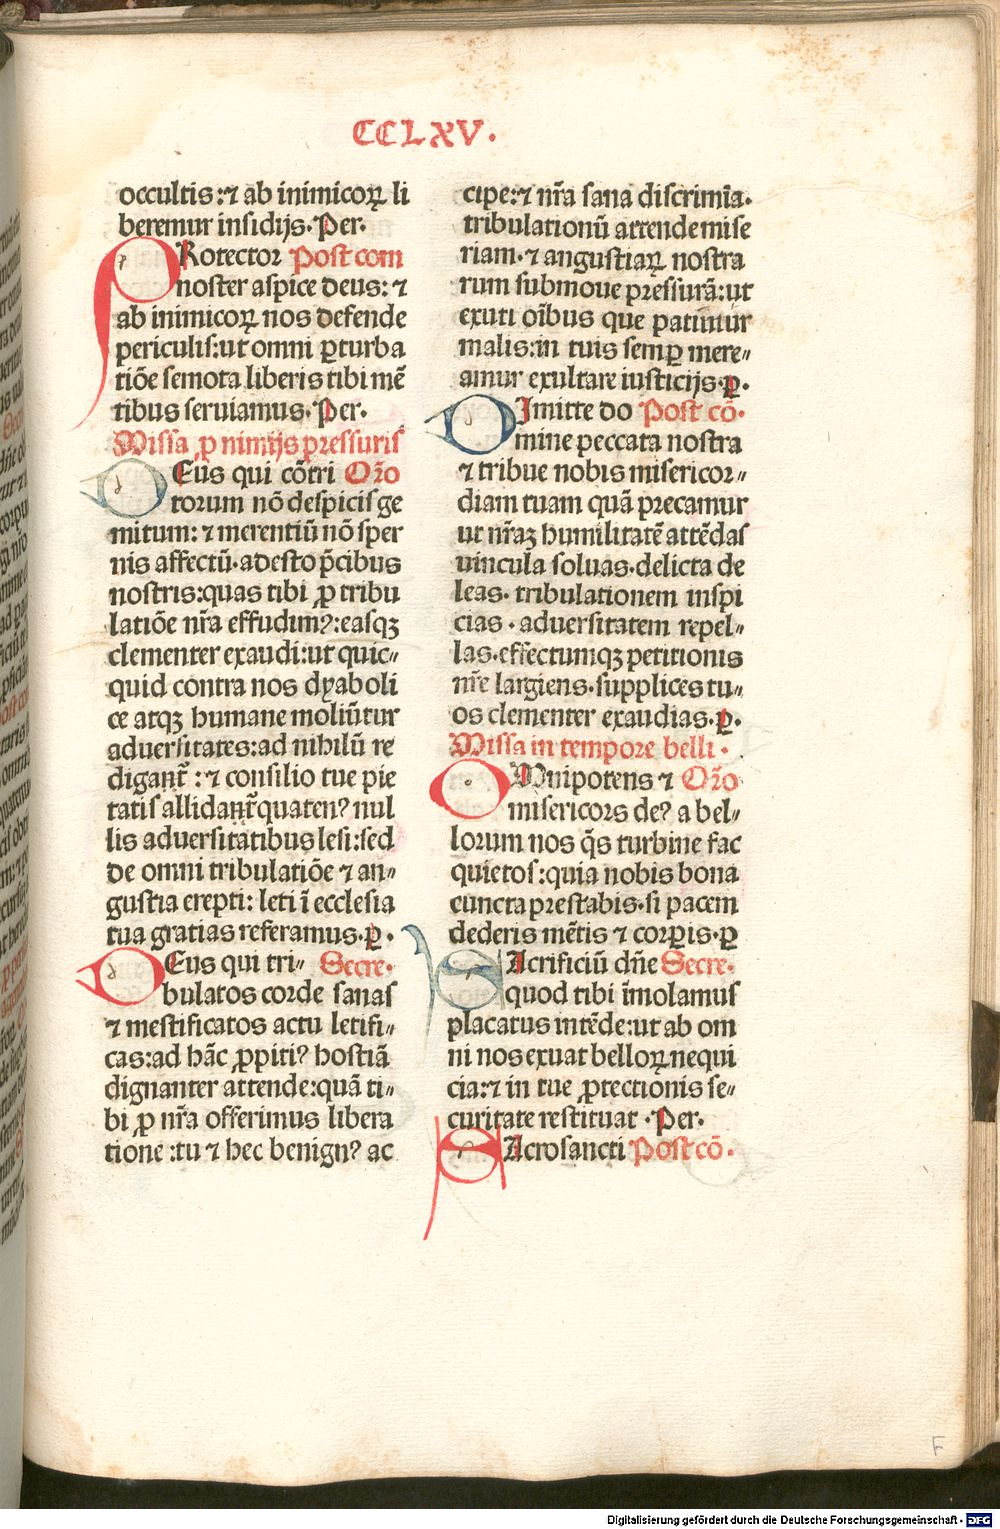 CCLXV.
occultis:⁊ ab inimicoꝝ li
beremur insidijs.Per.
PRotector Post com
noster aspice deus: ⁊
ab inimicoꝝ nos defende
periculis:ut omni ꝑturba
tiōe semota liberis tibi mē
tibus seruiamus.Per.
Missa ꝓ nimijs pressuris
DEus qui cōtri Oro
torum nō despicis ge
mitum: ⁊ merentiū nō sper
nis affectū.adesto p̄cibus
nostris:quas tibi ꝓ tribu
latiōe nr̄a effudimꝰ:easqꝫ
clementer exaudi:ut quic⸗
quid contra nos dyaboli
ce atqꝫ humane moliūtur
aduersitates:ad nihilū re
digant̄ :⁊ consilio tue pie
tatis allidant̄quatenꝰ nul
lis aduersitatibus lesi:sed
de omni tribulatiōe ⁊ an⸗
gustia erepti: leti ī ecclesia
tua gratias referamus.ꝑ.
DEus qui tri⸗ Secre.
bulatos corde sanas
⁊ mestificatos actu letifi⸗
cas:ad hāc ꝓpitiꝰ hostiā
dignanter attende:quā ti⸗
bi ꝓ nr̄a offerimus libera
tione :tu ⁊ hec benignꝰ ac
cipe:⁊ nr̄a sana discrimīa.
tribulationū attende mise
riam.⁊ angustiaꝝ nostra
rum submoue pressurā:ut
exuti oībus que patimur
malis:in tuis semꝑ mere⸗
amur exultare iusticijs.ꝑ.
DImitte do Post cō.
mine peccata nostra
⁊ tribue nobis misericor⸗
diam tuam quā precamur
ut nr̄aꝫ humilitatē attēdas
uincula soluas.delicta de
leas. tribulationem inspi
cias . aduersitatem repel⸗
las.effectumqꝫ petitionis
nr̄e largiens.supplices tu⸗
os clementer exaudias.ꝑ.
Missa in tempore belli .
OMnipotens ⁊ Oro
misericors deꝰ a bel⸗
lorum nos q̄s turbine fac
quietos:quia nobis bona
cuncta prestabis.si pacem
dederis mētis ⁊ corꝑis.ꝑ
SAcrificiū dn̄e Secre.
quod tibi īmolamus
placatus intēde:ut ab om
ni nos exuat belloꝝ nequi
cia:⁊ in tue ꝓtectionis se⸗
curitate restituat .Per.
SAcrosancti Post cō.
F
Digitalisierung gefördert durch die Deutsche Forschungsgemeinschaft - DFG